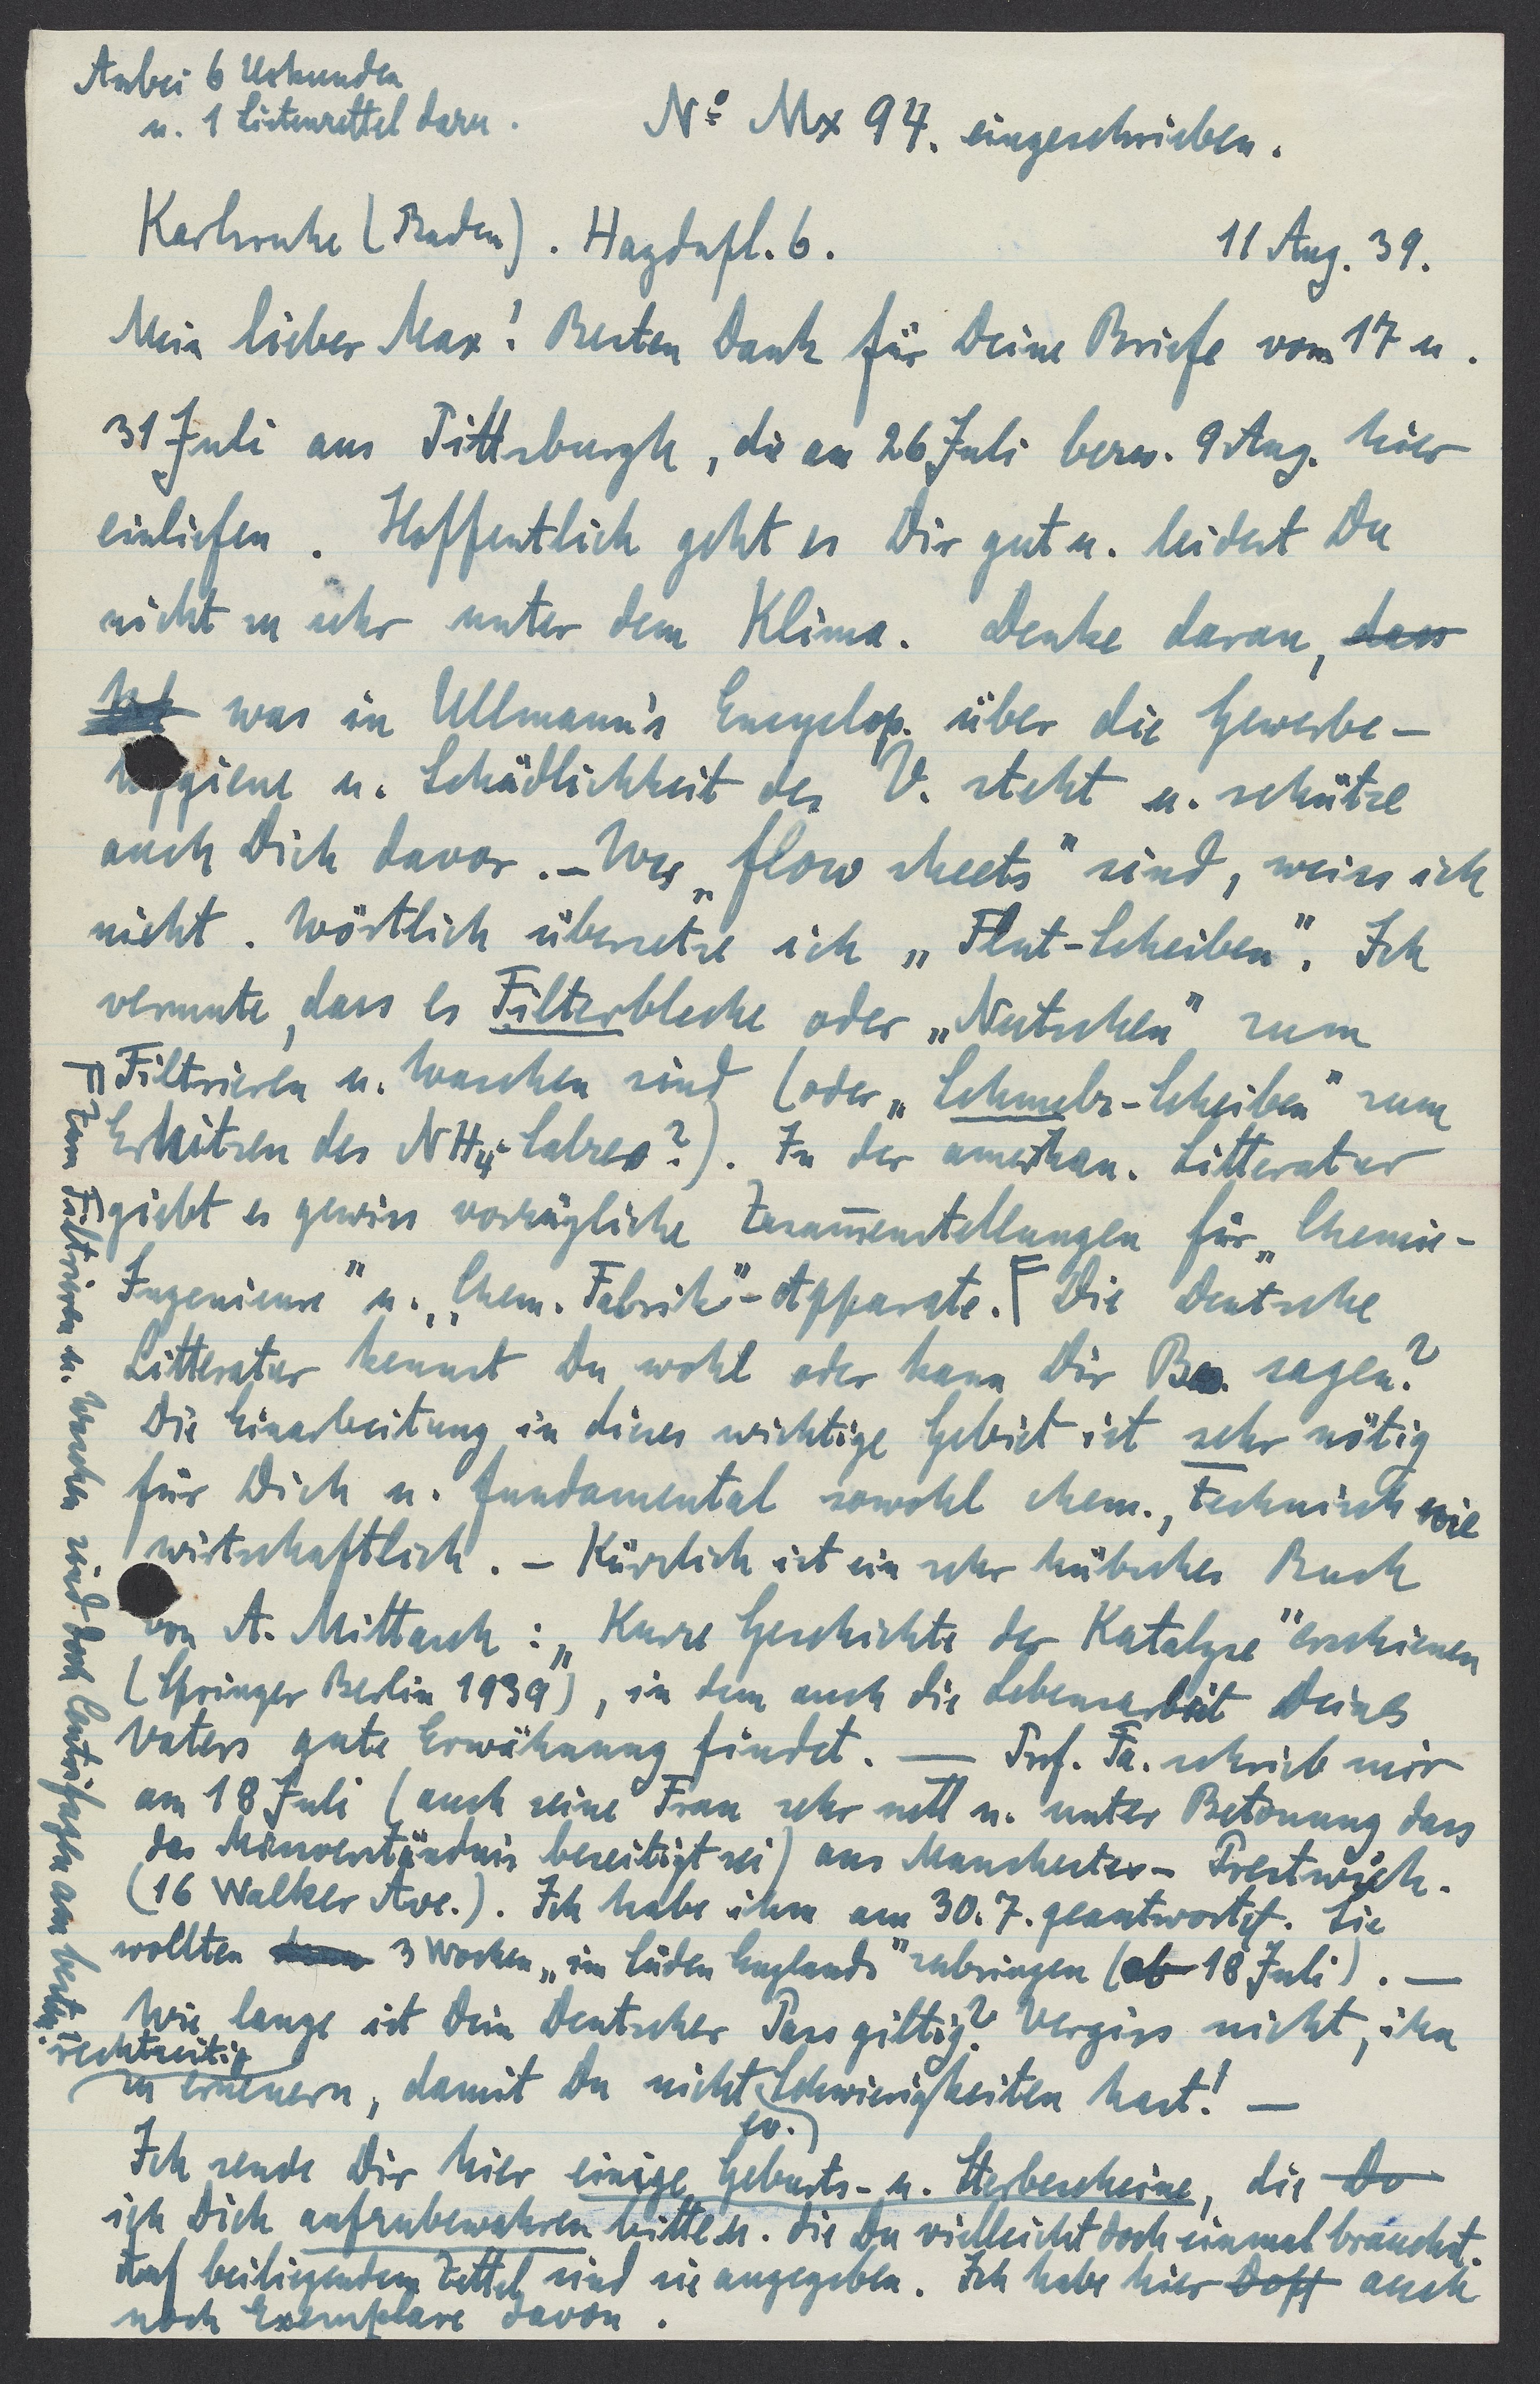 Anbei 6 Urkunden
u. 1 Listenzettel dazu.
No Mx 94. eingeschrieben.
Karlsruhe (Baden). Haydnpl. 6.
11 Aug. 39.
Mein lieber Max! Besten Dank für Deine Briefe vom 17 u.
31 Juli aus Pittsburgh, die am 26 Juli bezw. 9 Aug. hier
einliefen. Hoffentlich geht es Dir gut u. leidest Du
nicht zu sehr unter dem Klima. Denke daran, dass
was in Ullmann's Encyclop. über die Gewerbe-
hygiene u. Schädlichkeit des V. steht u. schütze
auch Dich davor. - Was „flow sheets" sind, weiss ich
nicht. Wörtlich übersetze ich „Flut-Scheiben". Ich
vermute, dass es Filterbleche oder „Nutschen" zum
Filtrieren u. Waschen sind (oder „Schmelz-Scheiben" zum
Erhitzen des NH4-Salzes?). In der amerikan. Litteratur
giebt es gewiss vorzügliche Zusam̅enstellungen für „Chemie-
Ingenieure" u. „Chem. Fabrik"-Apparate. Γ Die Deutsche
Litteratur kennst Du wohl oder kann Dir sagen?
Die Einarbeitung in dieses wichtige Gebiet ist sehr nötig
für Dich u. fundamental sowohl chem., technisch wie
wirtschaftlich. - Kürzlich ist ein sehr hübsches Buch
von A. Mittasch: „Kurze Geschichte der Katalyse" erschienen
(Springer Berlin 1939), in dem auch die Lebensarbeit Deines
Vaters gute Erwähnung findet. — Prof. Fa. schrieb mir
am 18 Juli (auch seine Frau sehr nett u. unter Betonung dass
das Missverständnis beseitigt sei) aus Manchester - Prestwich.
(16 Walker Ave.). Ich habe ihm am 30.7. geantwortet. Sie
wollten 3 Wochen „im Süden Englands" zubringen (ab 18 Juli). —
Wie lange ist Dein Deutscher Pass giltig? Vergiss nicht, ihn
rechtzeitig
zu erneuern, damit Du nicht Schwierigkeiten hast! —
ev.
Ich sende Dir hier einige Geburts- u. Sterbescheine, die Do
ich Dich aufzubewahren bitte u. die Du vielleicht doch einmal brauchst.
Auf beiliegendem Zettel sind sie angegeben. Ich habe hier Dopp auch
noch Exemplare davon.
Γ Zum Filtrieren u. Waschen sind doch Centrifugen am besten.